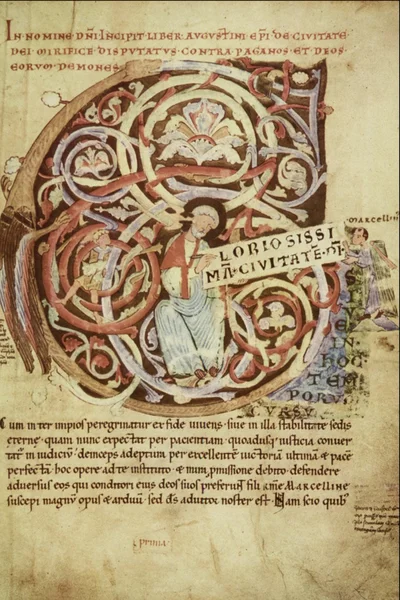 IN NOMINE DNI INCIPIT LIBER AVGVSTINI EPI DE CIVITATE
DEI MIRIFICE DISPVTATVS CONTRA PAGANOS ET DEOS
EORVM DEMONES
MARCELLIN
LORIOSISSI
MĀ CIVITATĒ DI
SI
VE IN
HOC
TEM
PORV
CVRSV
cum inter impios peregrinatur ex fide uiuens siue in illa stabilitate sedis
eterne quam nunc expectat per pacientiam quoadusq iusticia conuer
tat in iudiciū deinceps adeptura per excellentē uictoriā ultimā & pace
perfectā hoc opere ad te instituto & mea pmissione debito defendere
aduersus eos qui conditori eius deos suos preferunt fili kme Marcelline
suscepi magnū opus & arduū sed ds adiutor noster est Nam scio quib
prima